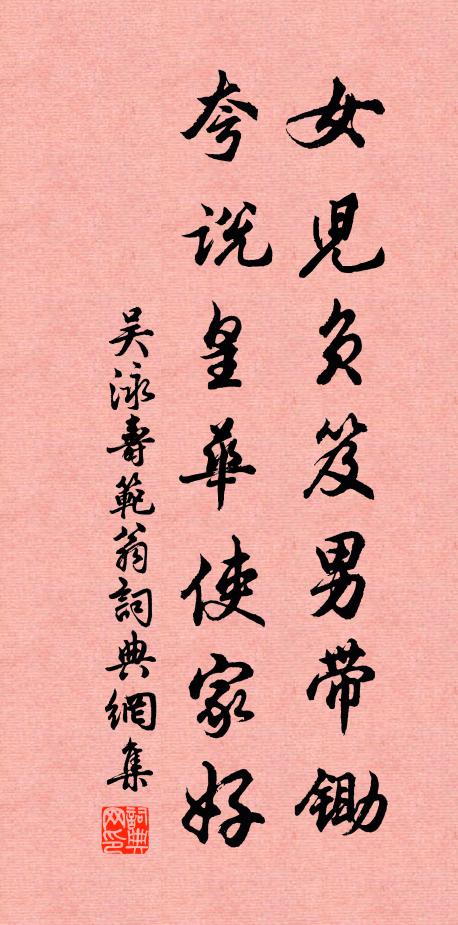 女児負笈男帯鋤
夸說皇華使家好
吴泳壽範翁詞典網集
詞典网印